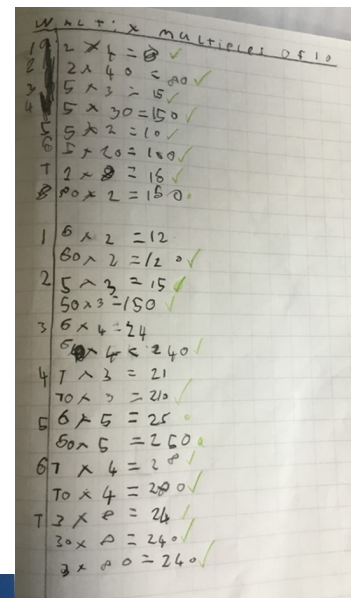 WALT: x multiples of 10
1 2 x 4 = 8
2 2 x 40 = 80
3 5 x 3 = 15
4 5 x 30 = 150
5 5 x 2 = 10
6 5 x 20 = 100
7 2 x 8 = 16
8 80 x 2 = 150
1 6 x 2 = 12
60 x 2 = 120
2 5 x 3 = 15
50 x 3 = 150
3 6 x 4 = 24
60 x 4 = 240
4 7 x 3 = 21
70 x 3 = 210
5 6 x 5 = 25
60 x 5 = 250
6 7 x 4 = 28
70 x 4 = 280
7 3 x 8 = 24
30 x 8 = 240
3 x 80 = 240